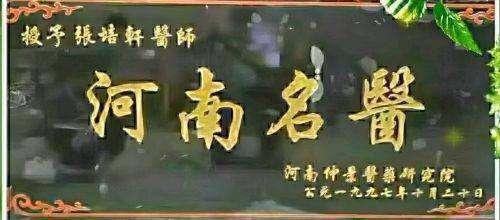 授予張培軒醫師
河南名醫
河南仲景醫藥研究院
公元一九九七年十月二十日